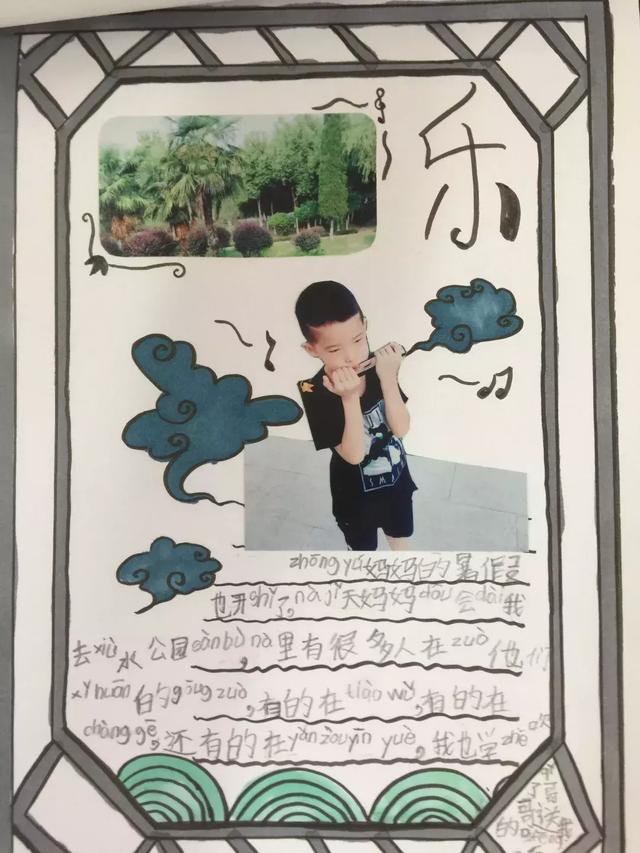 乐
zhōng yú妈妈的暑假
也开shǐ了。nà jǐ天妈妈dōu会dài我
去xiù水公园sàn bù,nà里有很多人在zuò他们
xǐ huān的gōng zuò,有的在tiào wǔ,有的在
chàng gē,还有的在yǎn zòu yīn yuè,我也学zhe吹
了
哥送我
的